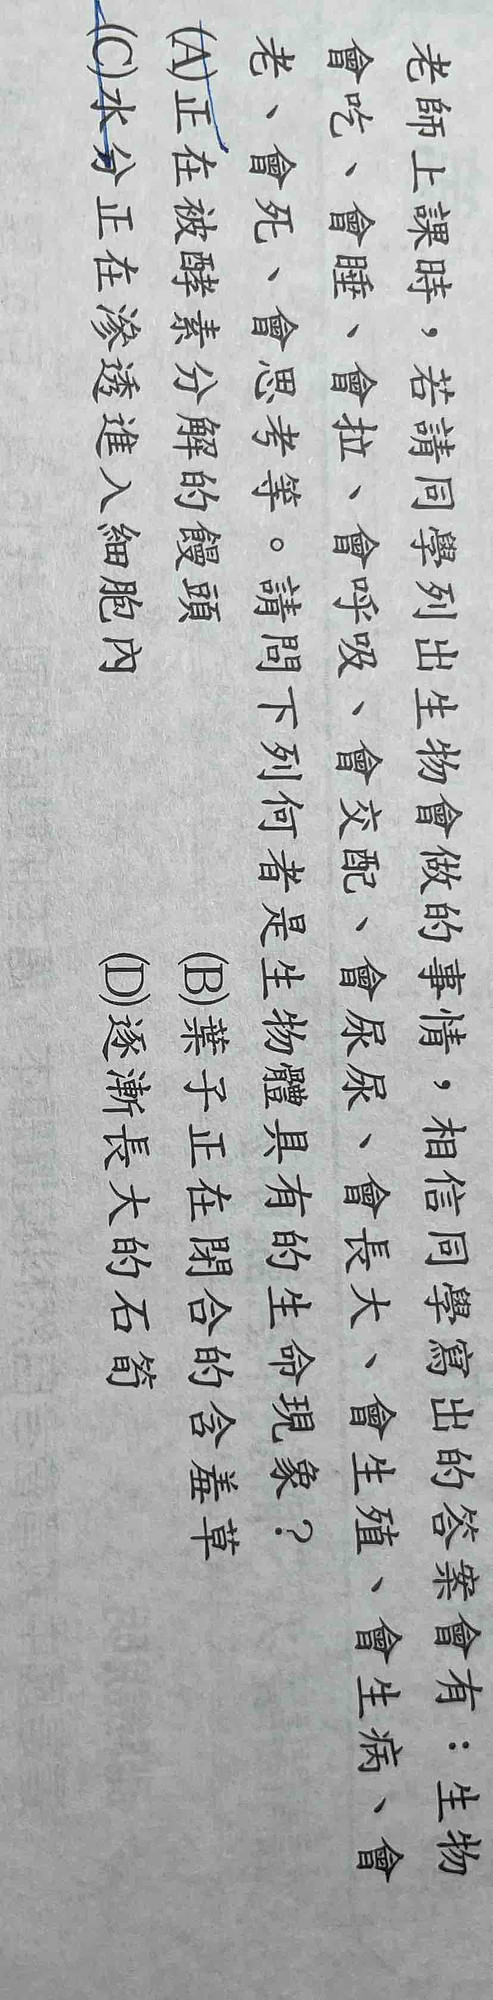 老師上課時，若請同學列出生物會做的事情，相信同學寫出的答案會有：生物
會吃、會睡、會拉、會呼吸、會交配、會尿尿、會長大、會生殖、會生病、會
老、會死、會思考等。請問下列何者是生物體具有的生命現象？
(A)正在被酵素分解的饅頭 (B)葉子正在閉合的含羞草
(C)水分正在滲透進入細胞內 (D)逐漸長大的石筍